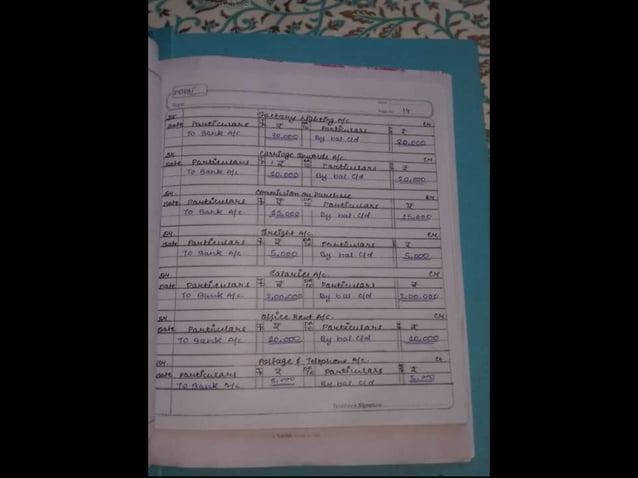 Page No. 14
Dr. Factory Lighting A/c. Cr.
Date Particulars J.F. ₹ Date Particulars J.F. ₹
To Bank A/c 20,000 By bal. c/d 20,000
Dr. Carriage Inwards A/c. Cr.
Date Particulars J.F. ₹ Particulars ₹
To Bank A/c. By bal. c/d
Dr. Commission on Purchase Cr.
Date Particulars J.F. ₹ Particulars ₹
To Bank A/c. 15,000 By bal. c/d 15,000
Dr. Freight A/c. Cr.
Date Particulars J.F. ₹ Particulars ₹
To Bank A/c 5,000 By bal. c/d 5,000
Dr. Salaries A/c. Cr.
Date Particulars J.F. ₹ Particulars ₹
To Bank A/c. By bal. c/d
Dr. Office Rent A/c. Cr.
Date Particulars J.F. ₹ Particulars ₹
To Bank A/c By bal. c/d
Dr. Postage & Telephone A/c. Cr.
Date Particulars J.F. ₹ Particulars ₹
To Bank A/c. 5,000 By bal. c/d 5,000
Teacher's Signature